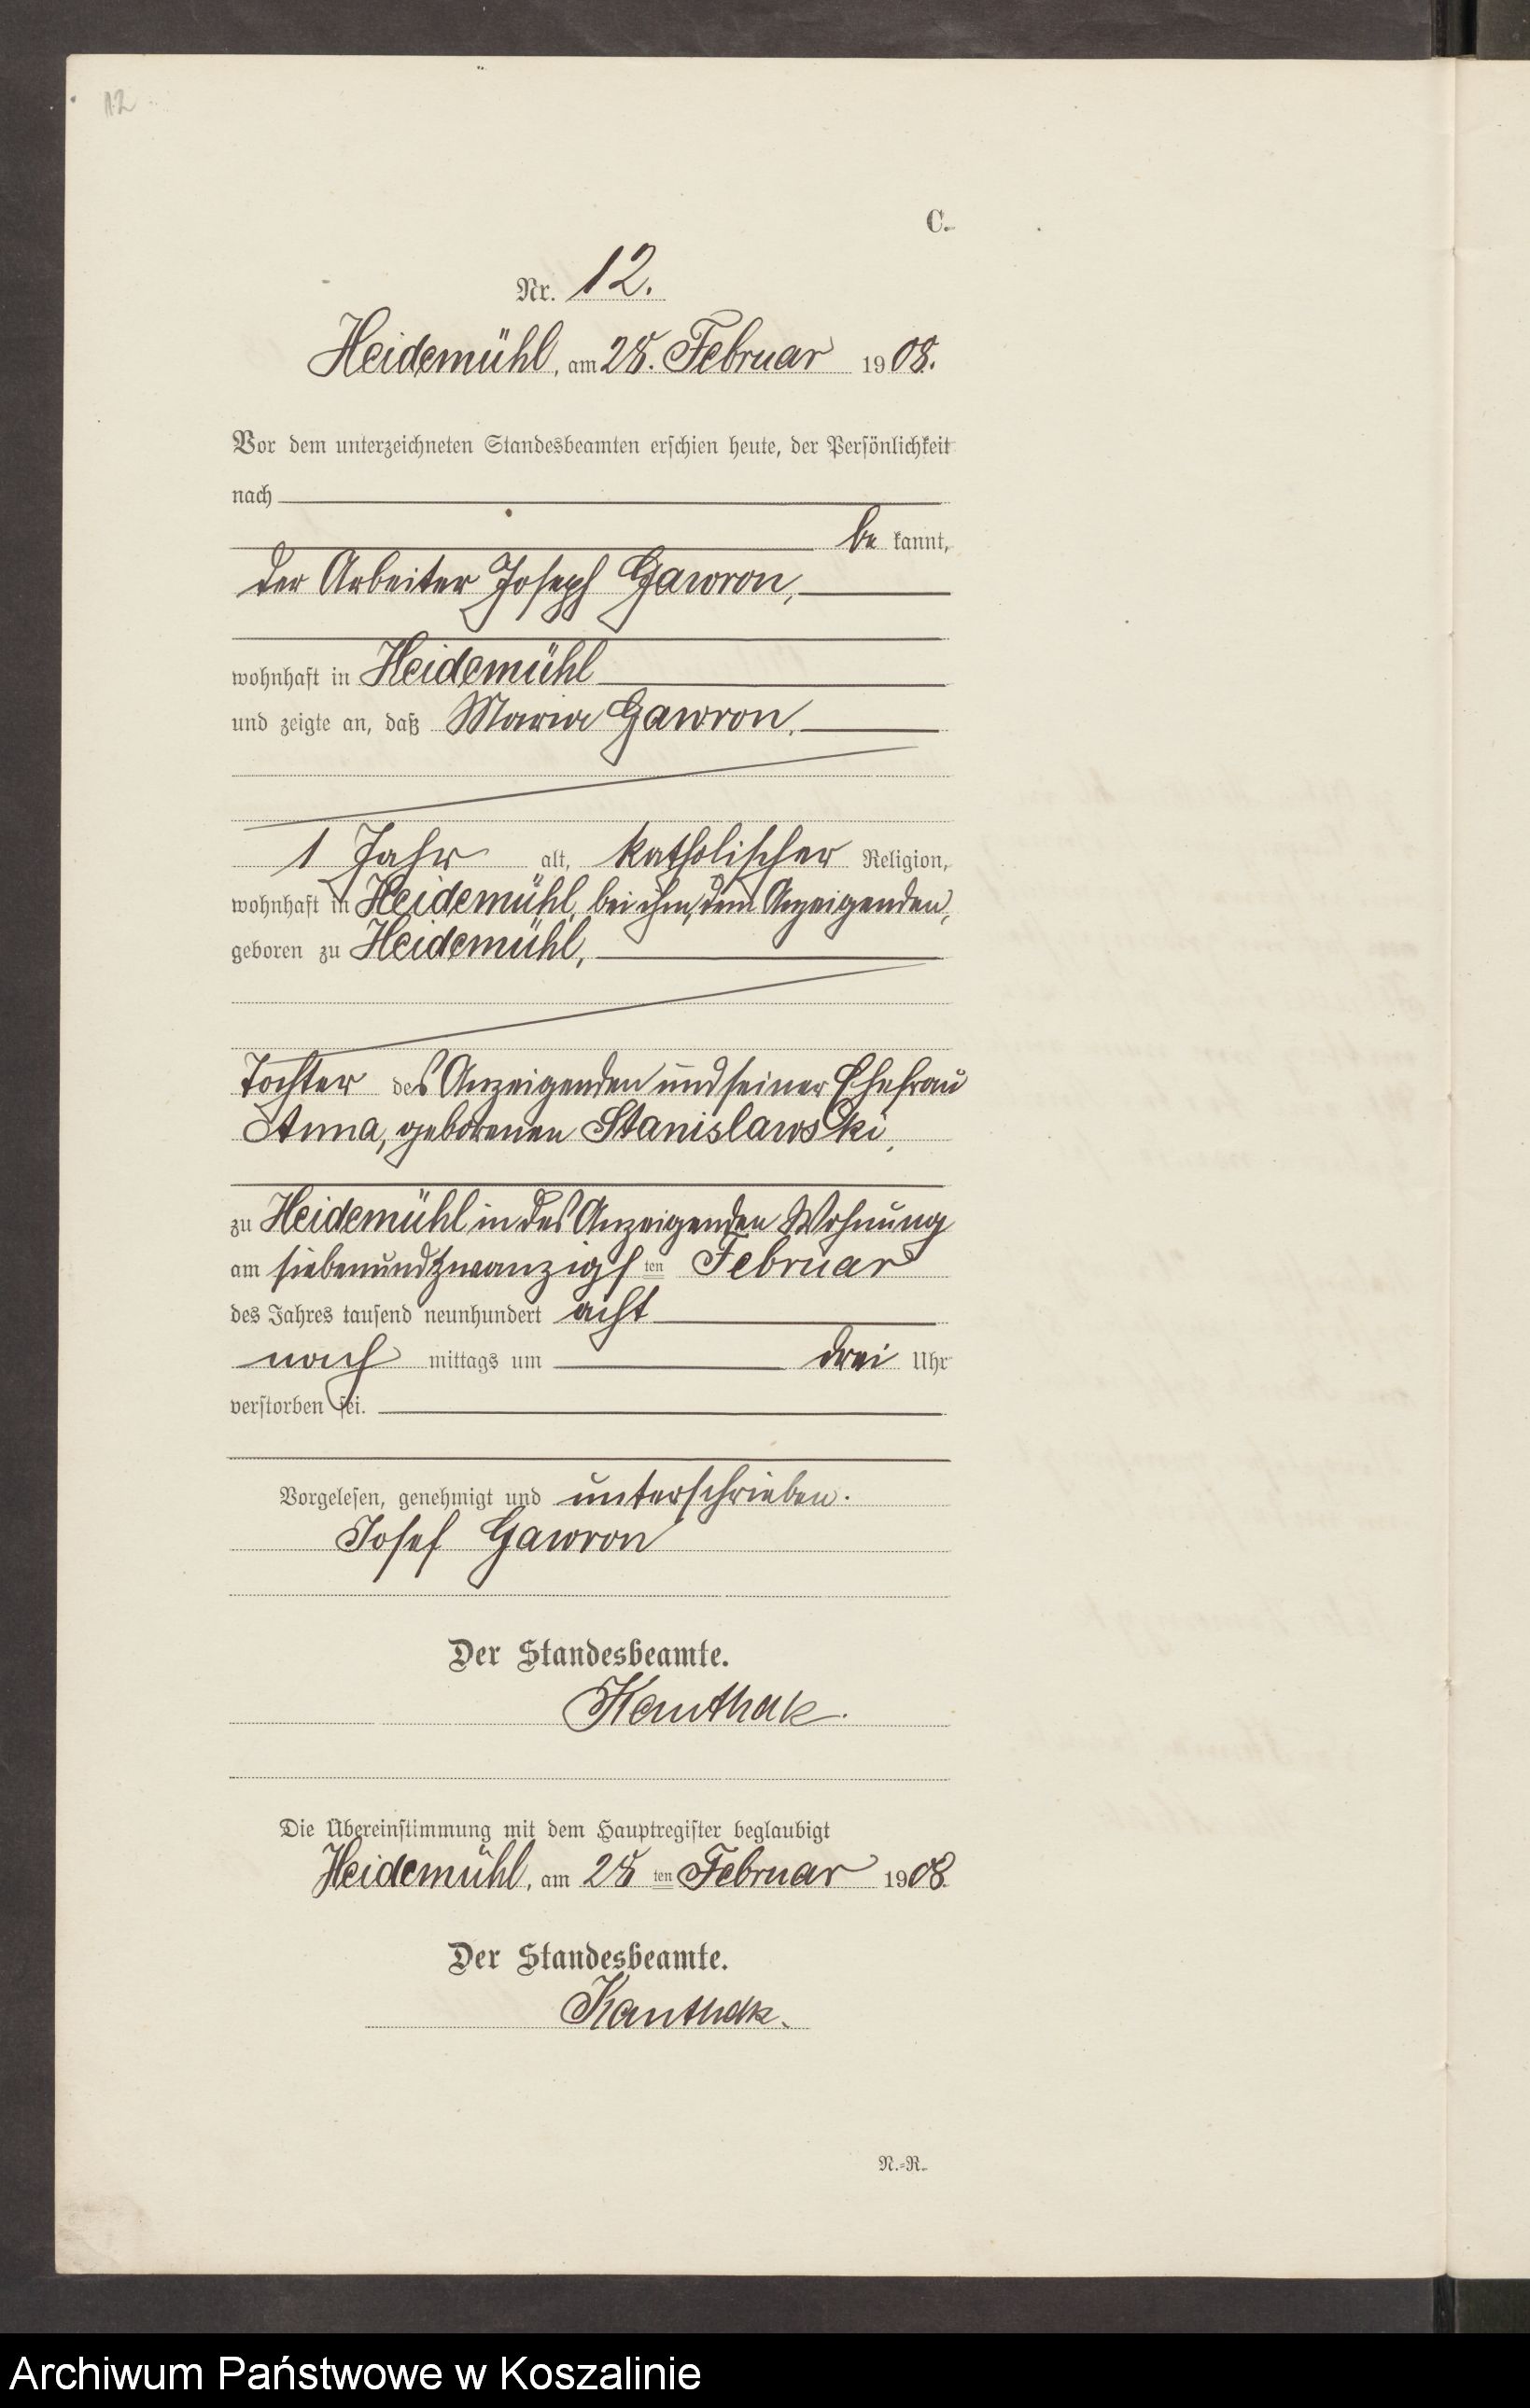 12
C.
Nr. 12.
Heidemühl, am 28. Februar 1908.
Vor dem unterzeichneten Standesbeamten erschien heute, der Persönlichkeit
nach
be kannt,
der Arbeiter Joseph Gawron,
wohnhaft in Heidemühl
und zeigte an, daß Maria Gawron,
1 Jahr alt, katholischer Religion,
wohnhaft in Heidemühl, bei ihm, dem Anzeigenden,
geboren zu Heidemühl,
Tochter des Anzeigenden und seiner Ehefrau
Anna, geborenen Stanislawski,
zu Heidemühl in des Anzeigenden Wohnung
am siebenundzwanzigsten Februar
des Jahres tausend neunhundert acht
nach mittags um drei Uhr
verstorben sei.
Vorgelesen, genehmigt und unterschrieben.
Josef Gawron
Der Standesbeamte.
Kanthak.
Die Übereinstimmung mit dem Hauptregister beglaubigt
Heidemühl, am 28 ten Februar 1908.
Der Standesbeamte.
Kanthak.
N.-R.
Archiwum Państwowe w Koszalinie